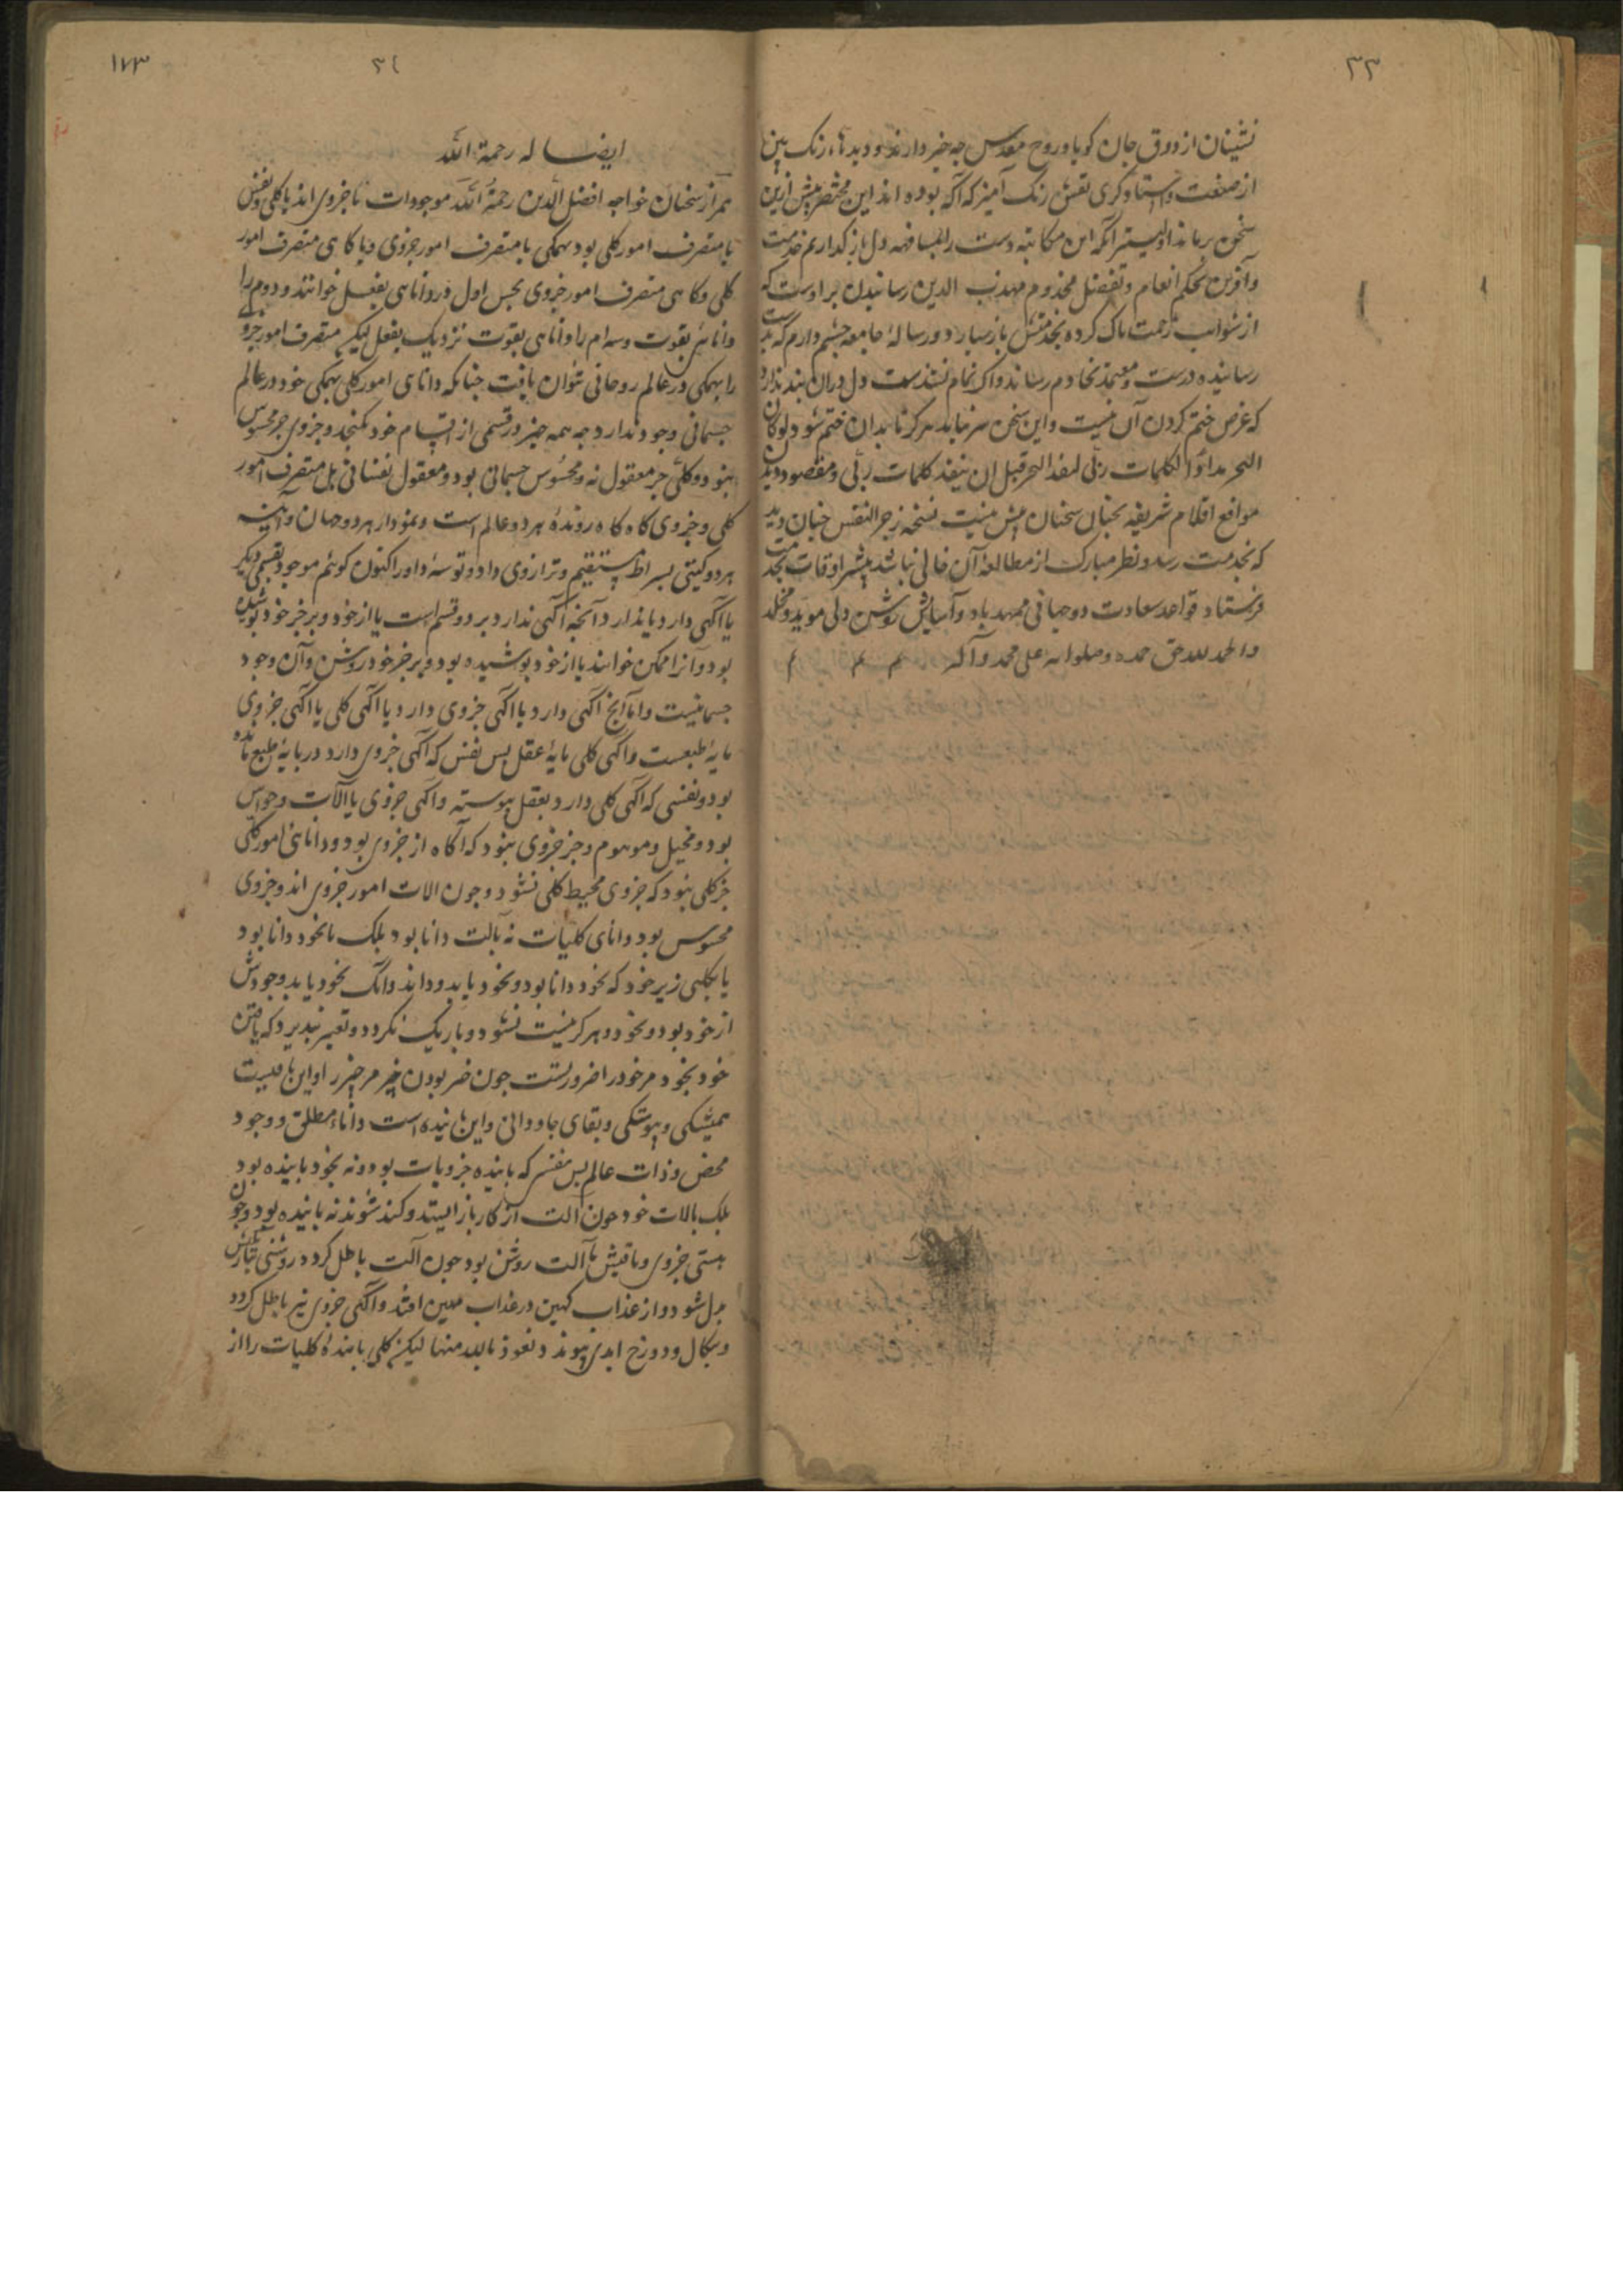 ٣٣
نشینان از ذوق جان کویا و روح مقدس چه خبر دارند و دیدهاء رنک بین
از صنعت و استادکری نقش رنک آمیز که آکه بوده اند این مختصر بیش ازین
سخن برماند اولیتر آنکه این مکاتبه دست را بمسافهه دل باز کذارم خدمت
وآفرین بحکم انعام و تفضل مخدوم مهذب الدین رسانیدن براوست که
از شوائب زحمت باک کرده بخدمتش باز سبارد و رسالهٔ جامعه چشم دارم که بدست
رساننده درست و معتمد بخادم رساند و اکر تمام نشدست دل دران بند ندارد
که غرض ختم کردن آن نیست و این سخن سرنیابد هرکز تا بدان ختم شود لوکان
البحر مدادًا لکلمات ربّی لنفد البحر قبل ان ینفد کلمات ربّی و مقصود دیدن
مواقع اقلام شریفه بخیال سخنان بیش نیست نسخه زجر النفس جنان دید
که بخدمت رسد و نظر مبارک از مطالعهٔ آن خالی نباشد بیشتر اوقات بخدمت
فرستاد قواعد سعادت دوجهانی ممهد باد و آسایش روشن دلی موید و مخلد
والحمد لله حق حمده وصلواته علی محمد وآله م م م
١٧٣
٣٤
ایضا له رحمة الله
هم از سخنان خواجه افضل الدین رحمة الله موجودات یا جزوی اند یا کلی و نفس
یا متصرف امور کلی بود بهمکی یا متصرف امور جزوی و یا کاهی متصرف امور
کلی و کاهی متصرف امور جزوی بخش اول را دانای بفعل خوانند و دوم را
دانای بقوت و سه ام را دانای بقوت نزدیک بفعل لیکن متصرف امور جزوی
را بهمکی در عالم روحانی نتوان یافت جنانکه دانای امور کلی بهمکی خود در عالم
جسمانی وجود ندارد چه همه چیز در قسمی از اقسام خود نکنجد و جزوی جز محسوس
نبود و کلی جز معقول نه و محسوس جسمانی بود و معقول نفسانی بل متصرف امور
کلی و جزوی کاه کاه روندهٔ هر دو عالم است و نمودار هر دو جهان و آینهٔ
هر دو کیتی بسراط مستقیم و ترازوی داد و توسهٔ داور اکنون کوئیم موجود بقسمی دیکر
یا آکهی دارد یا ندارد آنچه آکهی ندارد بر دو قسم است یا از خود و بر جز خود پوشیده
بود و آنرا ممکن خوانند یا از خود پوشیده بود و بر جز خود روشن و آن وجود
جسمانیست و اما آنچ آکهی دارد یا آکهی جزوی دارد یا آکهی کلی یا آکهی جزوی
مایهٔ طبعست و آکهی کلی مایهٔ عقل بس نفس که آکهی جزوی دارد در پایهٔ طبع مانده
بود و نفسی که آکهی کلی دارد بعقل پیوسته و آکهی جزوی با آلات و حواس
بود و مخیل و موهوم و جز جزوی نبود که آکاه از جزوی بود و دانای امور کلی
جز کلی نبود که جزوی محیط کلی نشود و جون الات امور جزوی اند و جزوی
محسوس بود دانای کلیات نه بآلت دانا بود بلک یا بخود دانا بود
یا بکلی زیر خود که بخود دانا بود و بخود یابد و داند و آنک بخود یابد وجودش
از خود بود و بخود و هرکز نیست نشود و باریک نکردد و تغیر نپذیرد که یافتن
خود بخود مر خود را ضروریست جون خبر بودن چیز مر چیز را و این خاصیت
همیشکی و پیوستکی و بقای جاودانی و این یابنده است داناء مطلق و وجود
محض و ذات عالم بس نفس که یابنده جزویات بود و نه بخود یابنده بود
بلک بالات خود جون آلت از کار باز ایستد و کند شوند نه یابنده بود و جون
هستی جزوی و یافتش بآلت روشن بود جون آلت باطل کردد روشنی
بدل شود و از عذاب کهین در عذاب مهین افتد و آکهی جزوی نیز باطل کردد
و بنکال و دوزخ ابدی پیوندد نعوذ بالله منها لیکن کلی یابندهٔ کلیات را از